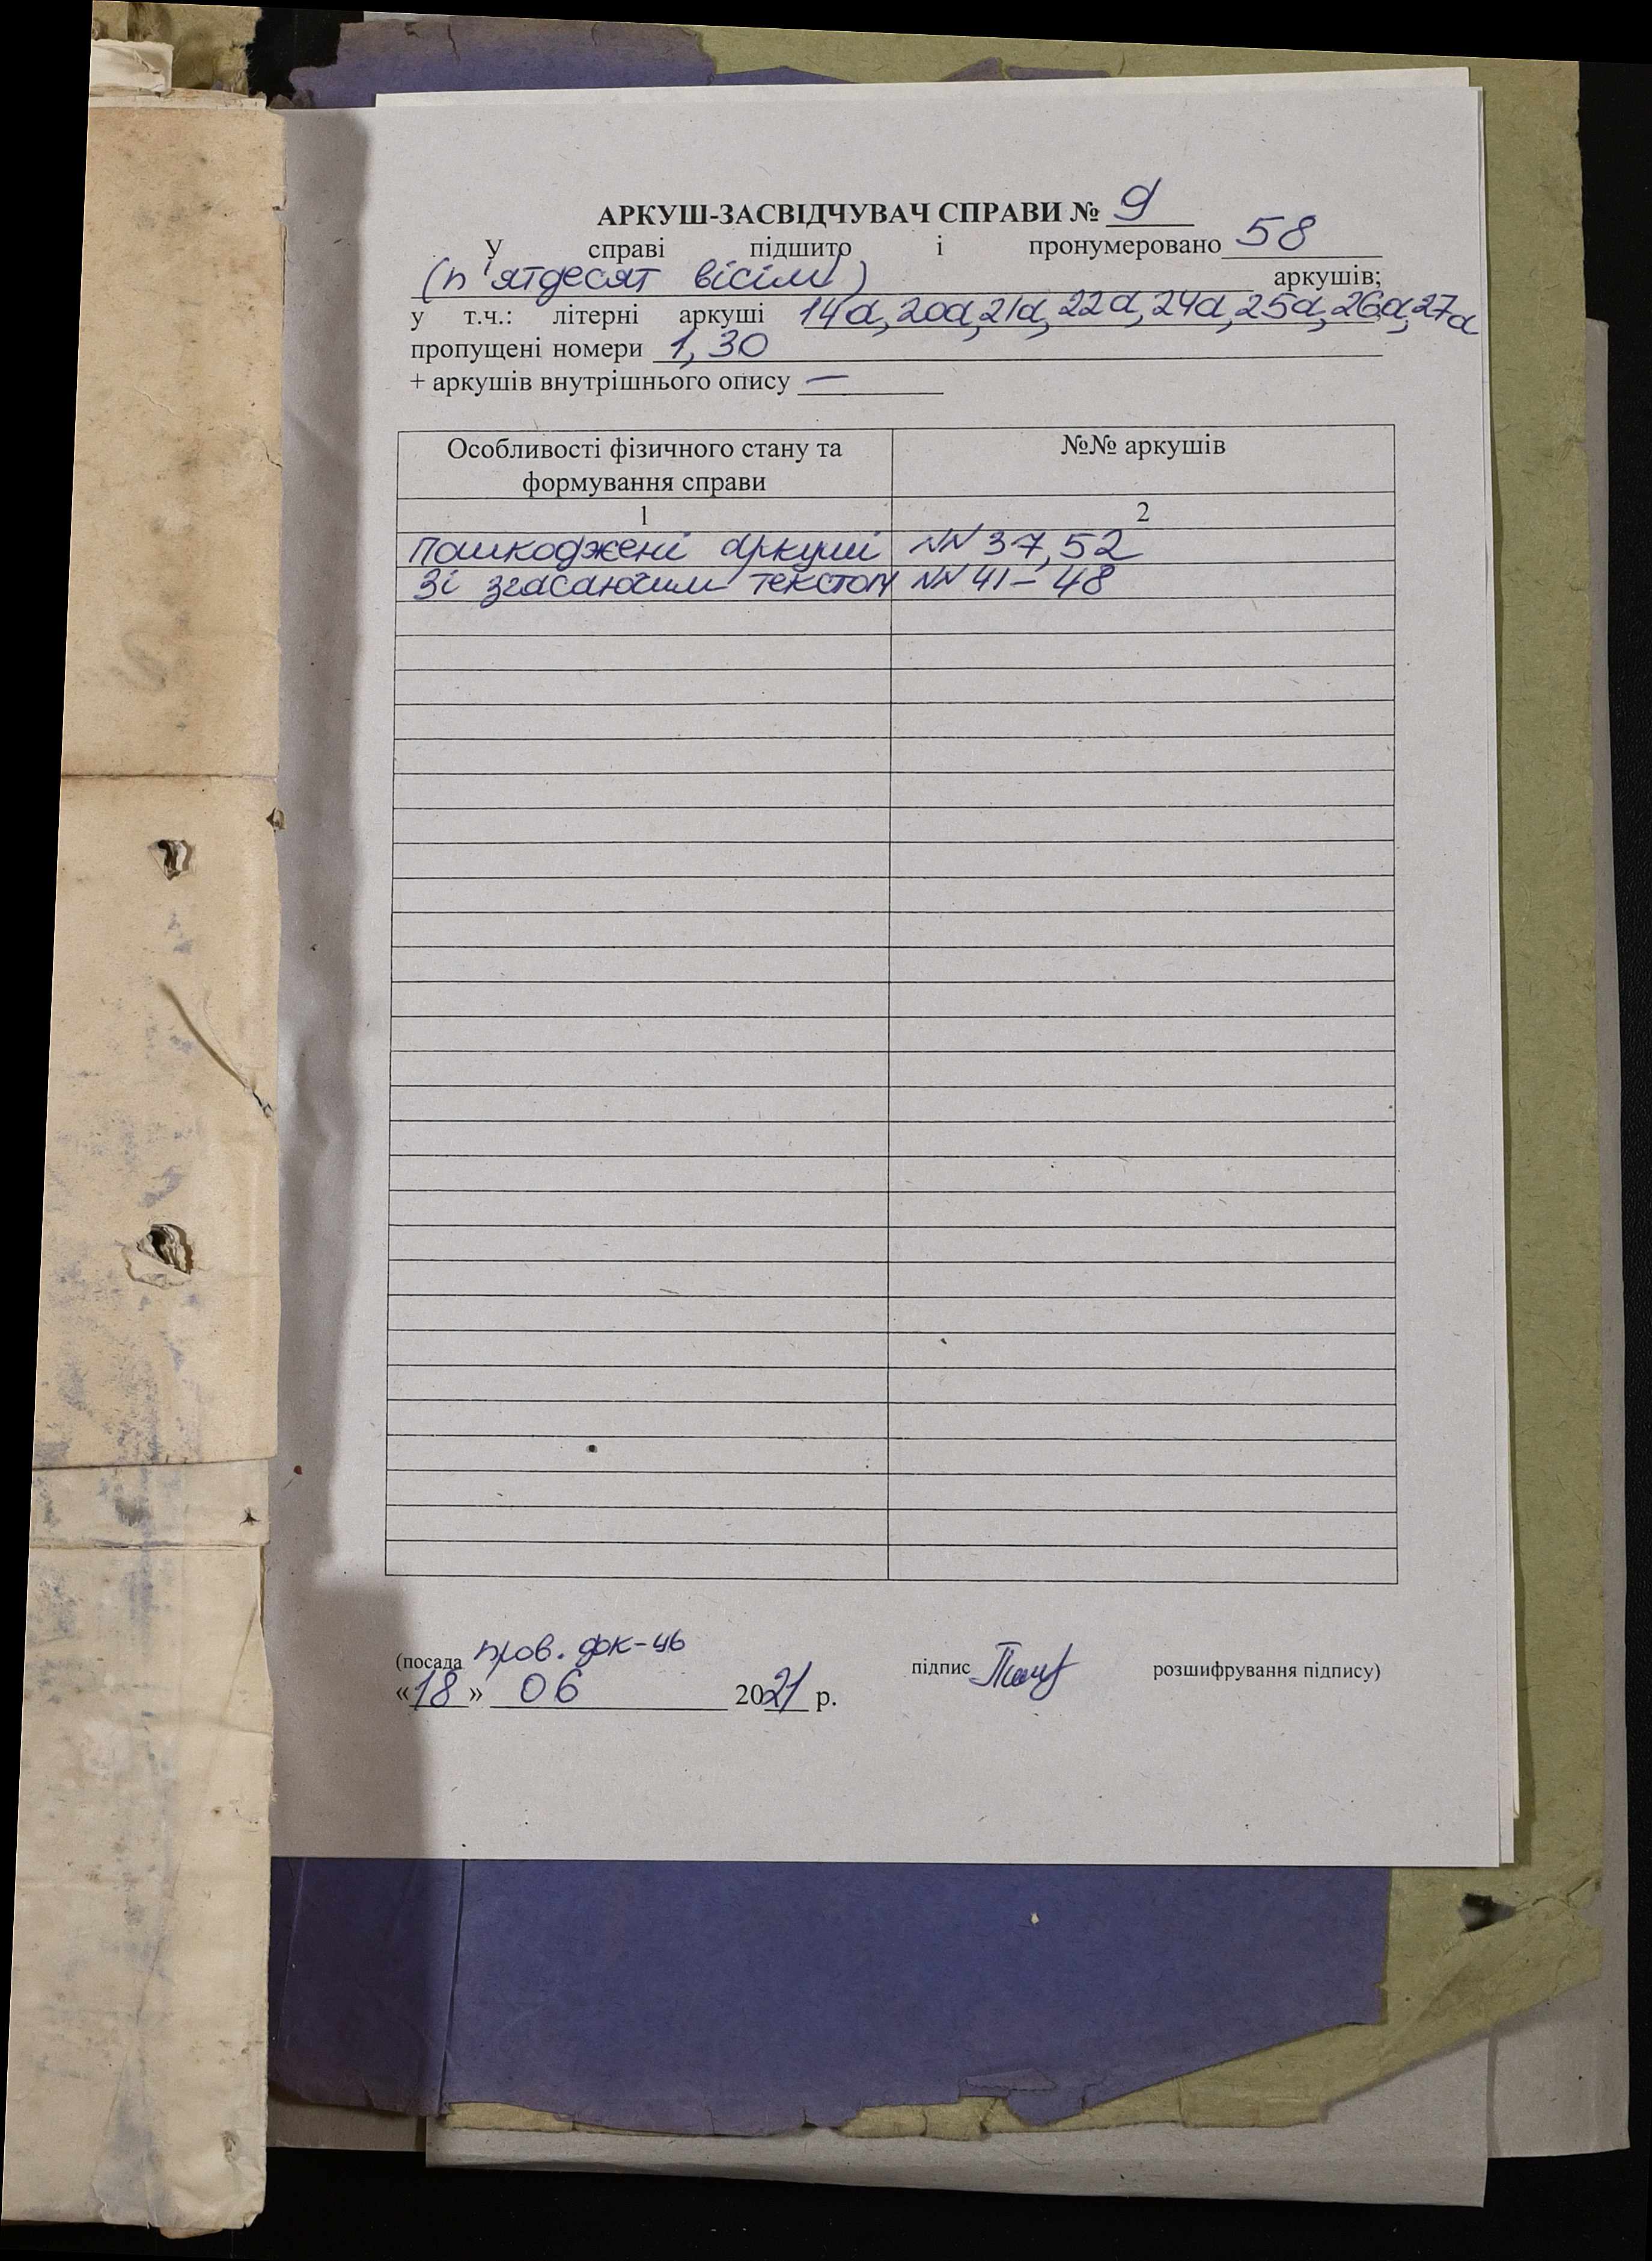 АРКУШ-ЗАСВІДЧУВАЧ СПРАВИ № 9
У справі підшито і пронумеровано 58
(п'ятдесят вісім) аркушів;
у т.ч.: літерні аркуші 14а, 20а, 21а, 22а, 24а, 25а, 26а, 27а
пропущені номери 1, 30
+ аркушів внутрішнього опису —
Особливості фізичного стану та формування справи №№ аркушів
1 2
Пошкоджені аркуші №№ 37, 52
Зі згасаючим текстом №№ 41 – 48
(посада пров. док-ць підпис розшифрування підпису)
«18» 06 2021 р.